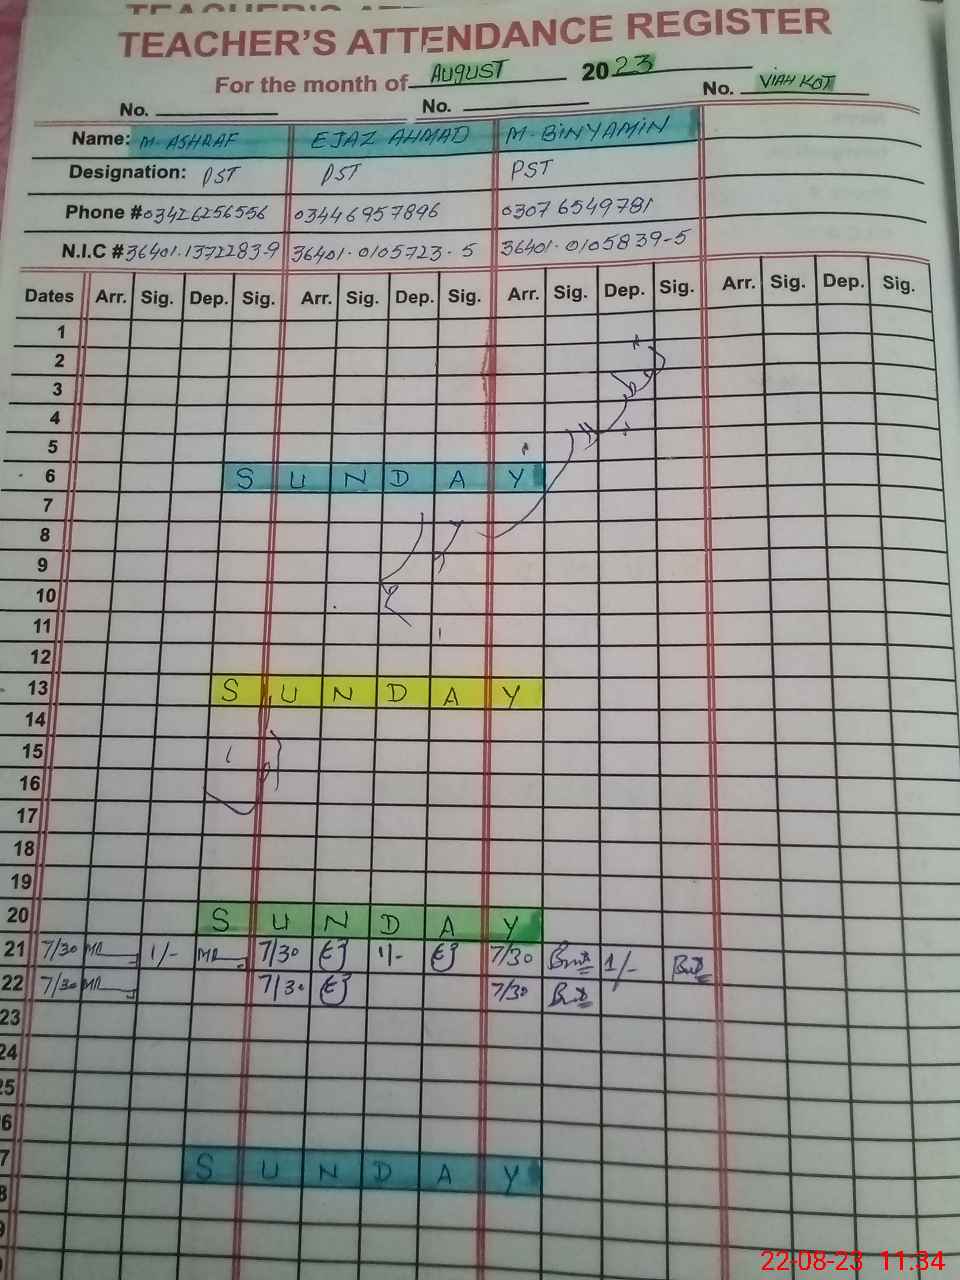 TEACHER'S ATTENDANCE REGISTER
For the month of AUGUST 2023
No. No. No. VIAH KOT
Name: M. ASHRAF EJAZ AHMAD M. BINYAMIN
Designation: PST PST PST
Phone # 03426256556 03446957896 03076549781
N.I.C # 36401.1372283-9 36401.0105723-5 36401.0105839-5
Dates Arr. Sig. Dep. Sig. Arr. Sig. Dep. Sig. Arr. Sig. Dep. Sig. Arr. Sig. Dep. Sig.
1
2
3
4
5
6 SUNDAY
7
8
9
10
11
12
13 SUNDAY
14
15
16
17
18
19
20 SUNDAY
21 7/30 1/- 7/30 1/- 7/30 1/-
22 7/30 7/30 7/30
23
24
25
6
7 SUNDAY
8
9
22-08-23 11:34